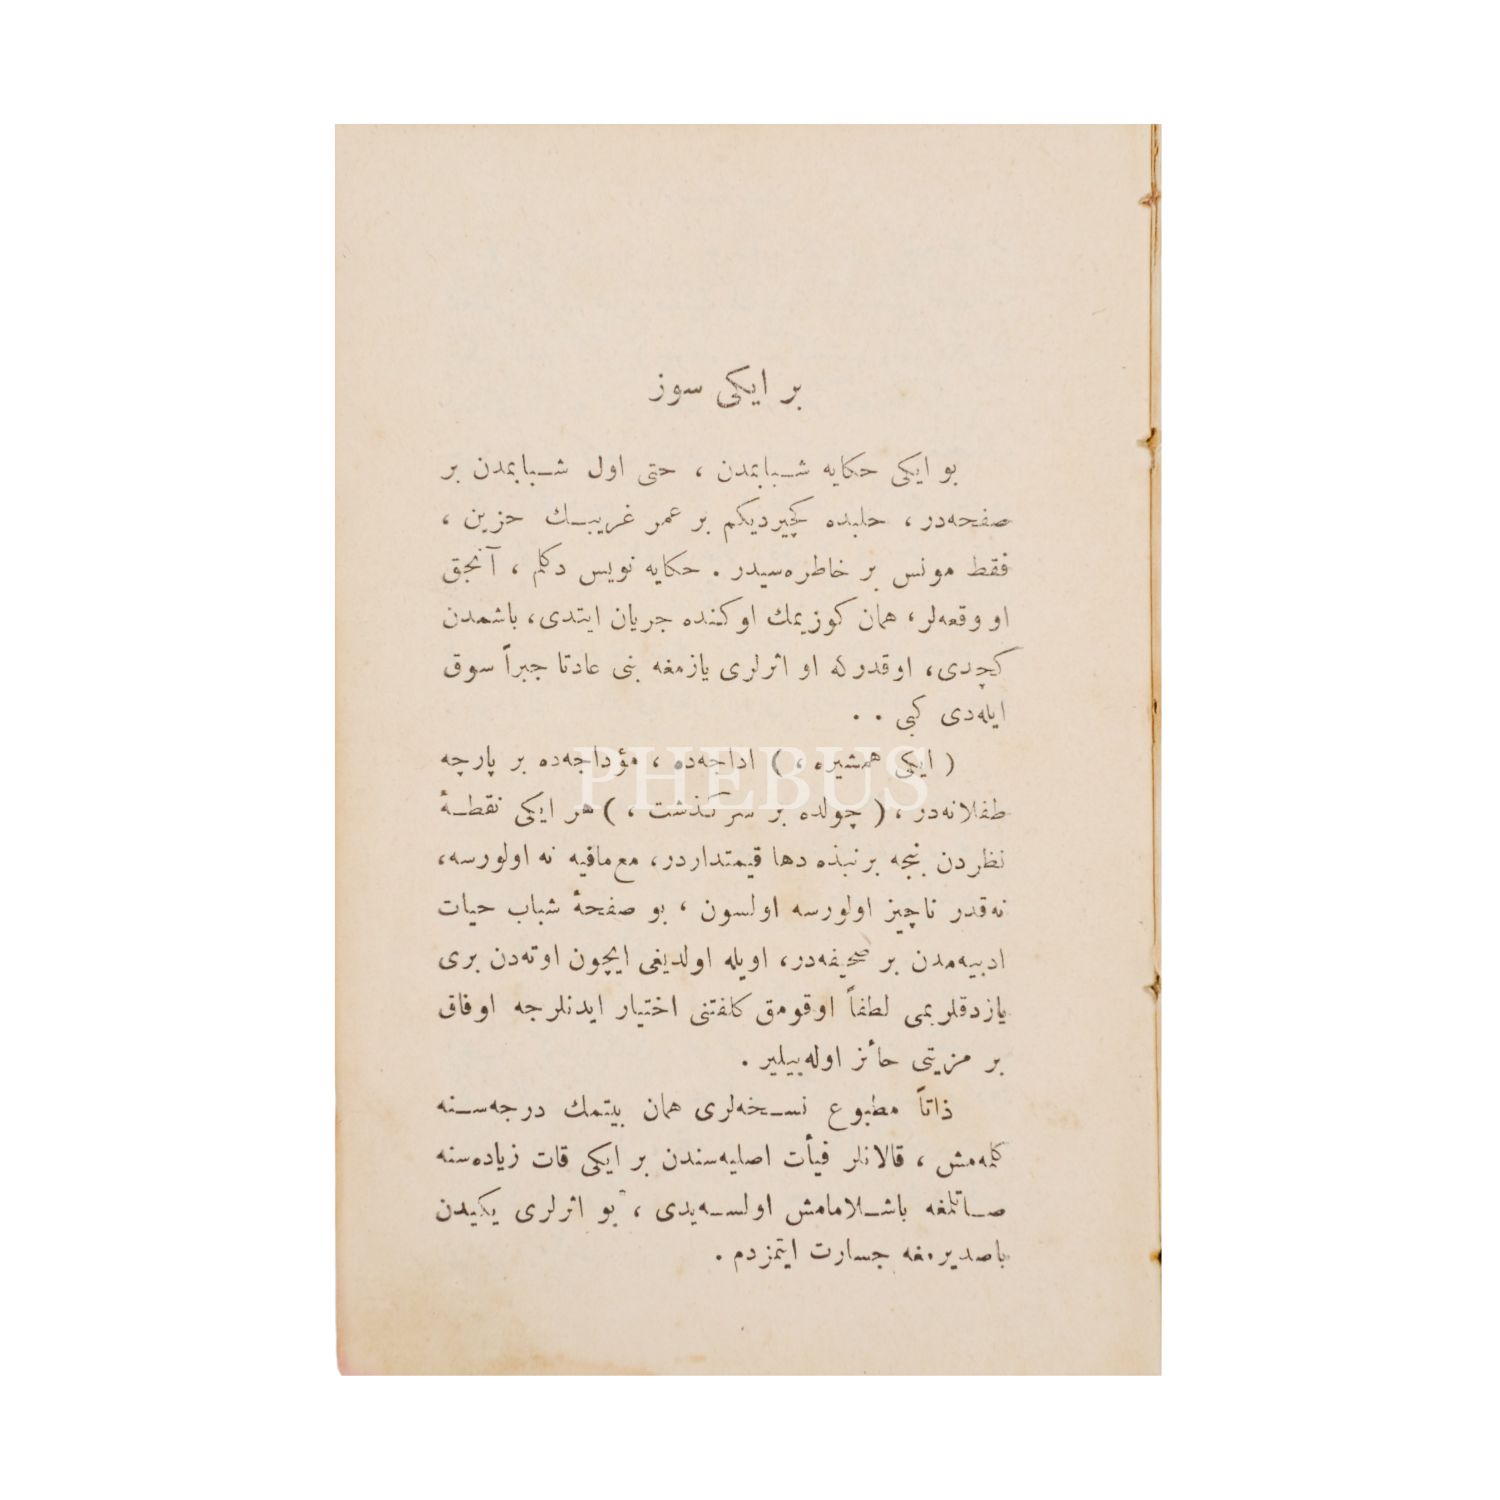 بر ایکی سوز
بو ایکی حکایه شـبابمدن ، حتی اول شـبابمدن بر
صفحه‌در ، حلبده کچیردیکم بر عمر غریبـك حزین ،
فقط مونس بر خاطره‌سیدر . حکایه نویس دکلم ، آنجق
او وقعه‌لر، همان کوزیمك اوکنده جریان ایتدی، باشمدن
کچدی، اوقدرکه او اثرلری یازمغه بنی عادتا جبراً سوق
ایله‌دی کبی . .
( ایکی همشیره ، ) اداجه‌ده ، مؤداجه‌ده بر پارچه
PHEBUS
طفلانه‌در ، ( چولده بر سرکذشت ، ) هر ایکی نقطـۀ
نظردن بنجه برنبذه دها قیمتداردر، مع‌مافیه نه اولورسه،
نه‌قدر ناچیز اولورسه اولسون ، بو صفحۀ شباب حیات
ادبیه‌مدن بر صحیفه‌در، اویله اولدیغی ایچون اوته‌دن بری
یازدقلریمی لطفاً اوقومق کلفتنی اختیار ایدنلرجه اوفاق
بر مزیتی حائز اوله‌بیلیر .
ذاتاً مطبوع نسـخه‌لری همان بیتمك درجه‌سـنه
کلمه‌مش ، قالانلر فیأت اصلیه‌سندن بر ایکی قات زیاده‌سنه
صـاتلمغه باشـلامامش اولسـه‌یدی ، بو اثرلری یکیدن
باصدیرمغه جسارت ایتمزدم .